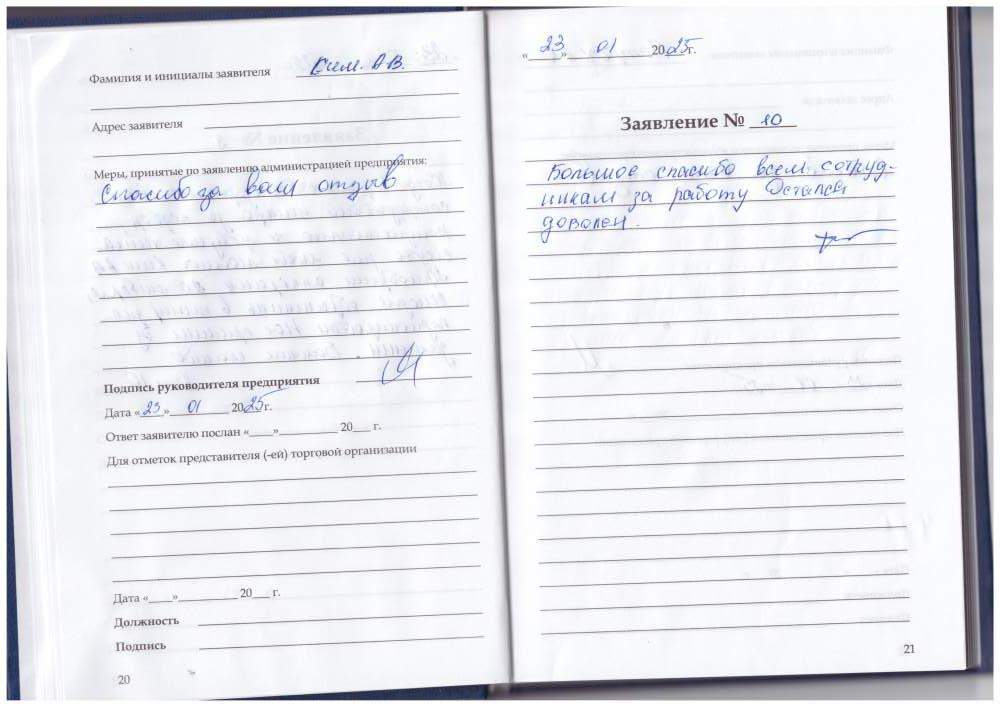 Фамилия и инициалы заявителя Ким. А В.
Адрес заявителя
Меры, принятые по заявлению администрацией предприятия:
Спасибо за ваш отзыв
Подпись руководителя предприятия
Дата «23» 01 2025г.
Ответ заявителю послан «____»__________ 20___ г.
Для отметок представителя (-ей) торговой организации
Дата «____»__________ 20___ г.
Должность
Подпись
20
«23» 01 2025г.
Заявление № 10
Большое спасибо всем сотруд-
никам за работу Остался
доволен.
21